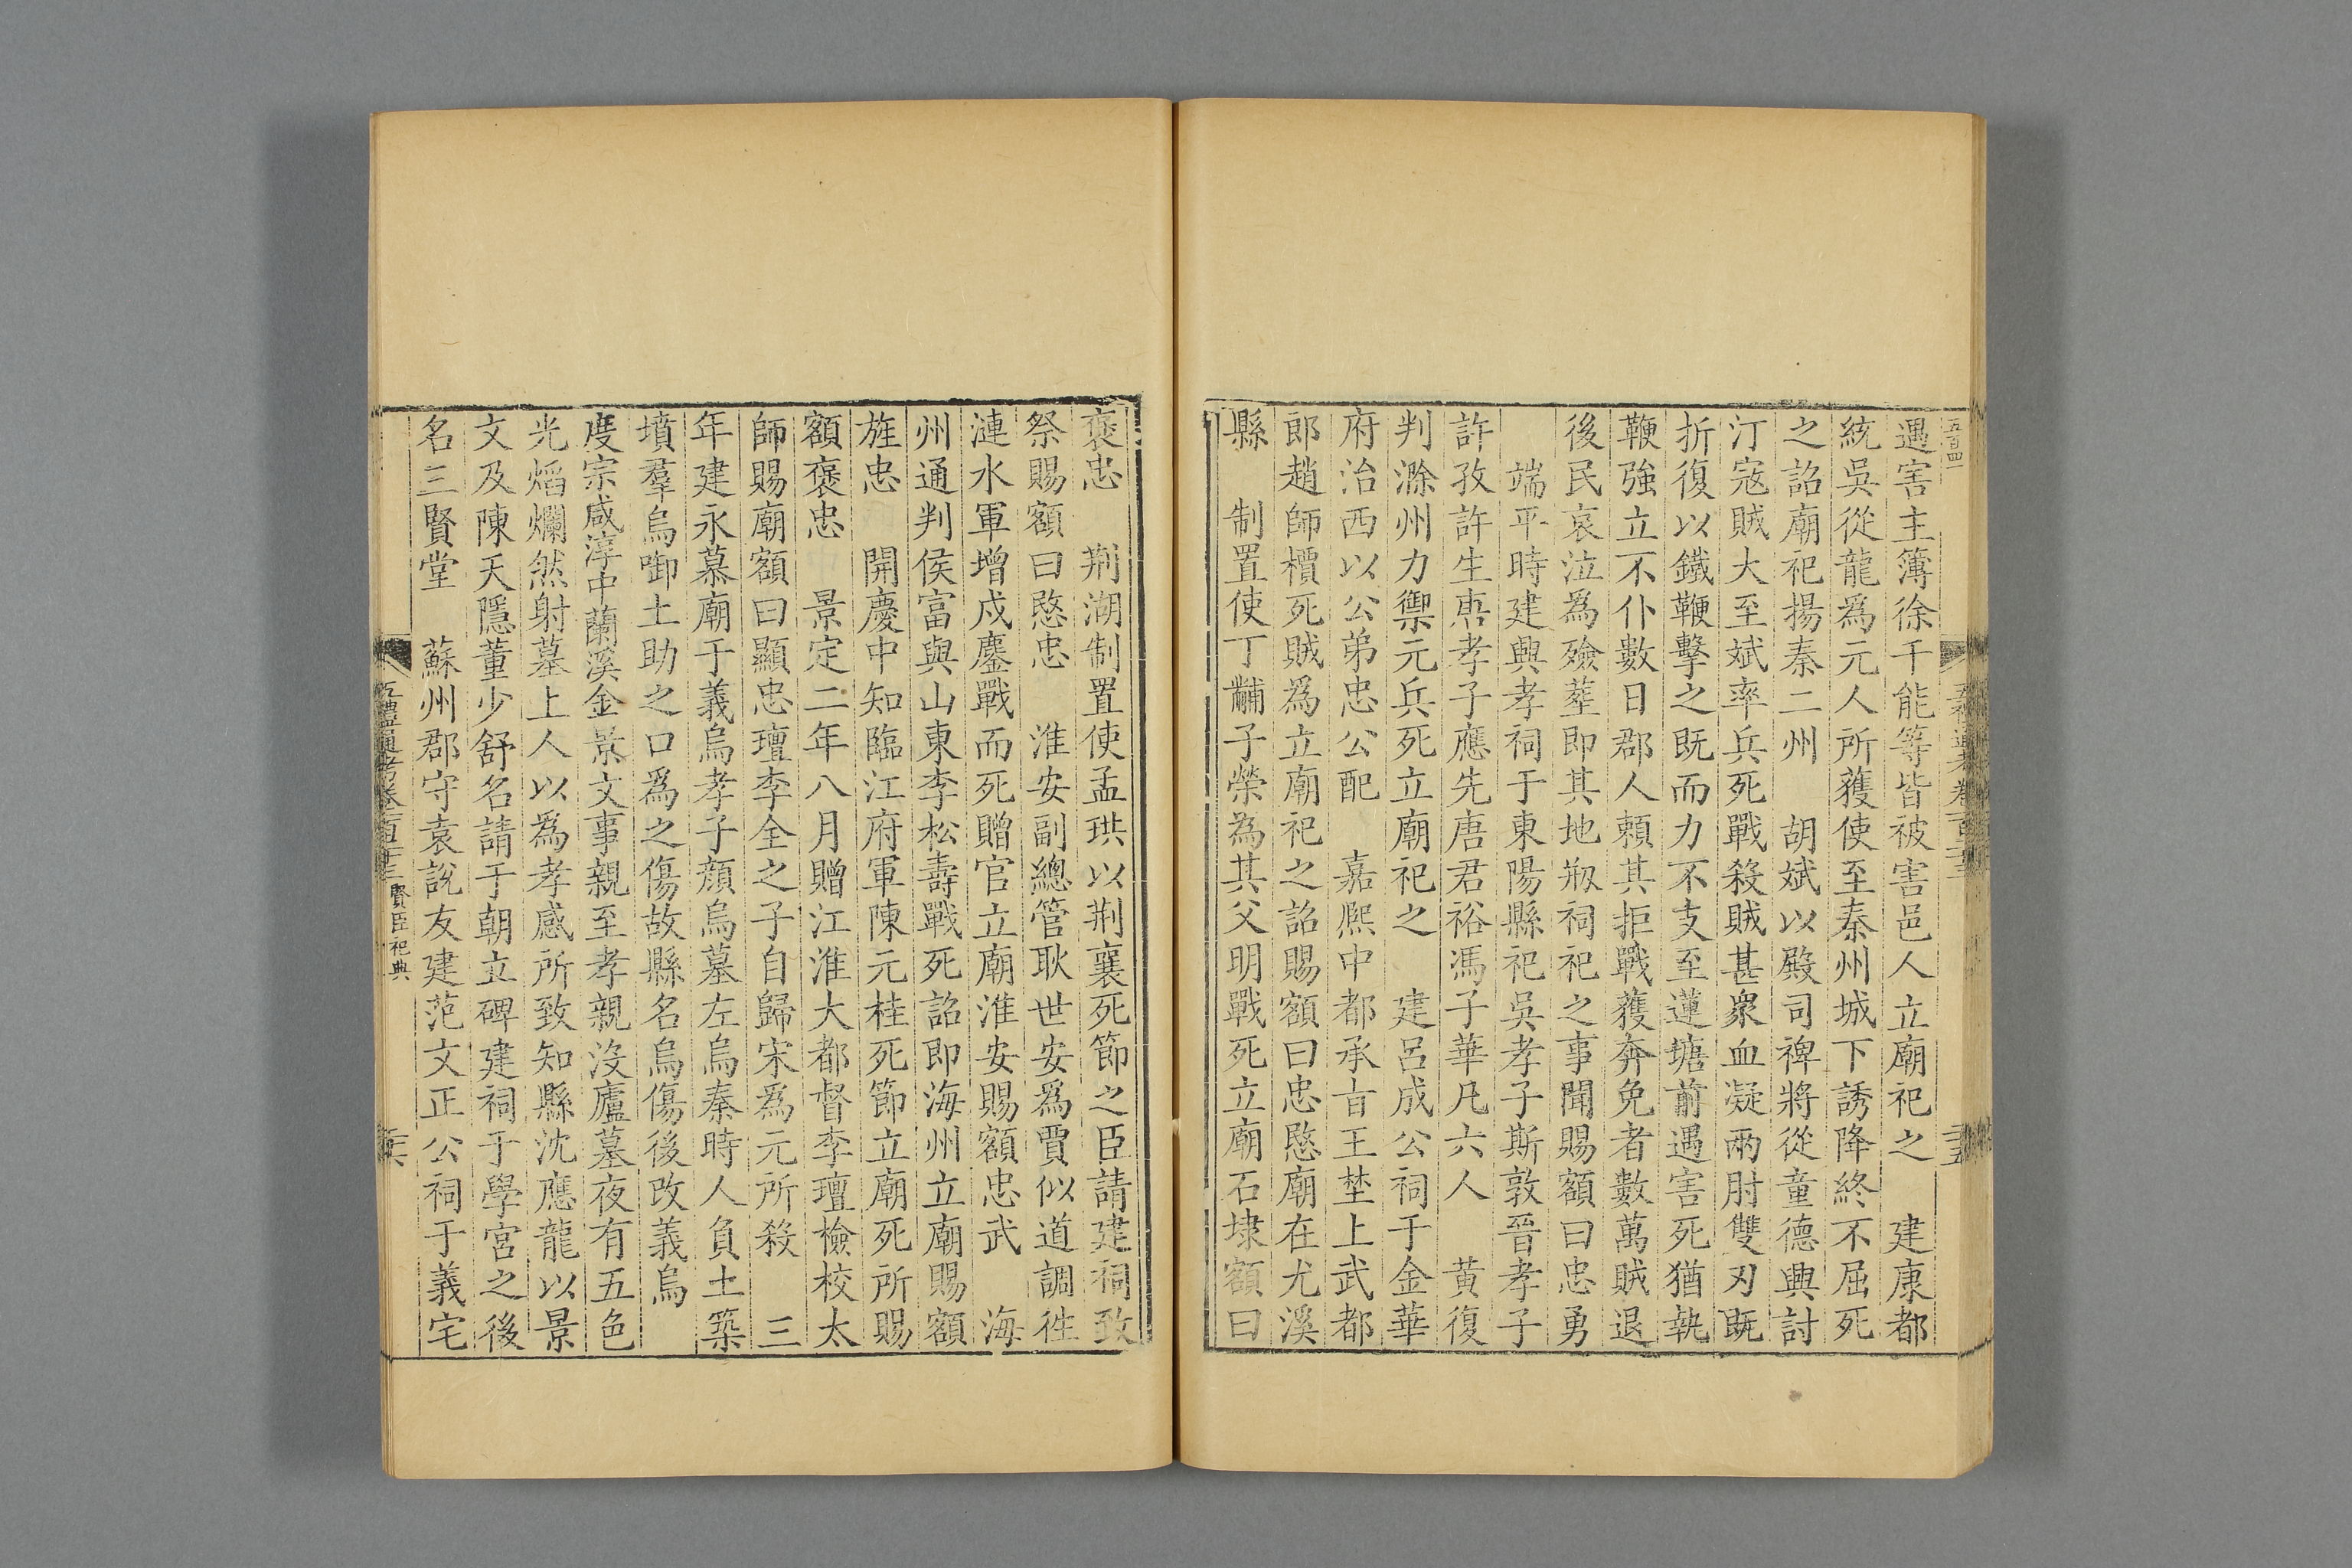 五百四
遇害主簿徐千能等皆被害邑人立廟祀之　建康都
統吳從龍爲元人所獲使至秦州城下誘降終不屈死
之詔廟祀揚秦二州　胡斌以殿司裨將從童德興討
汀寇賊大至斌率兵死戰殺賊甚衆血凝兩肘雙刃既
折復以鐵鞭擊之既而力不支至蓮塘前遇害死猶執
鞭強立不仆數日郡人賴其拒戰獲奔免者數萬賊退
後民哀泣爲殮塟即其地剏祠祀之事聞賜額曰忠勇
　端平時建興孝祠于東陽縣祀吳孝子斯敦晉孝子
許孜許生唐孝子應先唐君裕馮子華凡六人　黃復
判滁州力禦元兵死立廟祀之　建呂成公祠于金華
府治西以公弟忠公配　嘉熙中都承旨王埜上武都
郎趙師檟死賊爲立廟祀之詔賜額曰忠愍廟在尤溪
縣　制置使丁黼子榮為其父明戰死立廟石埭額曰
褒忠　荆湖制置使孟珙以荆襄死節之臣請建祠致
祭賜額曰愍忠　淮安副總管耿世安爲賈似道調徃
漣水軍增戍鏖戰而死贈官立廟淮安賜額忠武　海
州通判侯富與山東李松壽戰死詔即海州立廟賜額
旌忠　開慶中知臨江府軍陳元桂死節立廟死所賜
額褒忠　景定二年八月贈江淮大都督李璮檢校太
師賜廟額曰顯忠璮李全之子自歸宋爲元所殺　三
年建永慕廟于義烏孝子顔烏墓左烏秦時人負土築
墳羣烏啣土助之口爲之傷故縣名烏傷後改義烏
度宗咸淳中蘭溪金景文事親至孝親沒廬墓夜有五色
光熖爛然射墓上人以為孝感所致知縣沈應龍以景
文及陳天隱董少舒名請于朝立碑建祠于學宮之後
名三賢堂　蘇州郡守袁說友建范文正公祠于義宅
五禮通考卷一百二十三　賢臣祀典